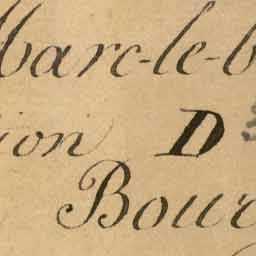 Marc-le-b
ion D
Bourg